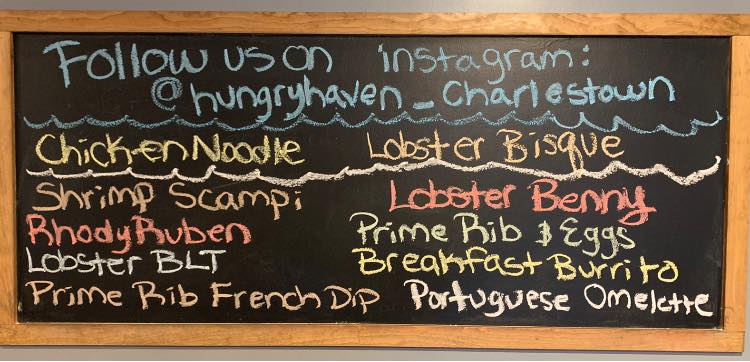 Follow us on instagram:
@hungryhaven_Charlestown
Chicken Noodle Lobster Bisque
Shrimp Scampi Lobster Benny
Rhody Ruben Prime Rib & Eggs
Lobster BLT Breakfast Burrito
Prime Rib French Dip Portuguese Omelette